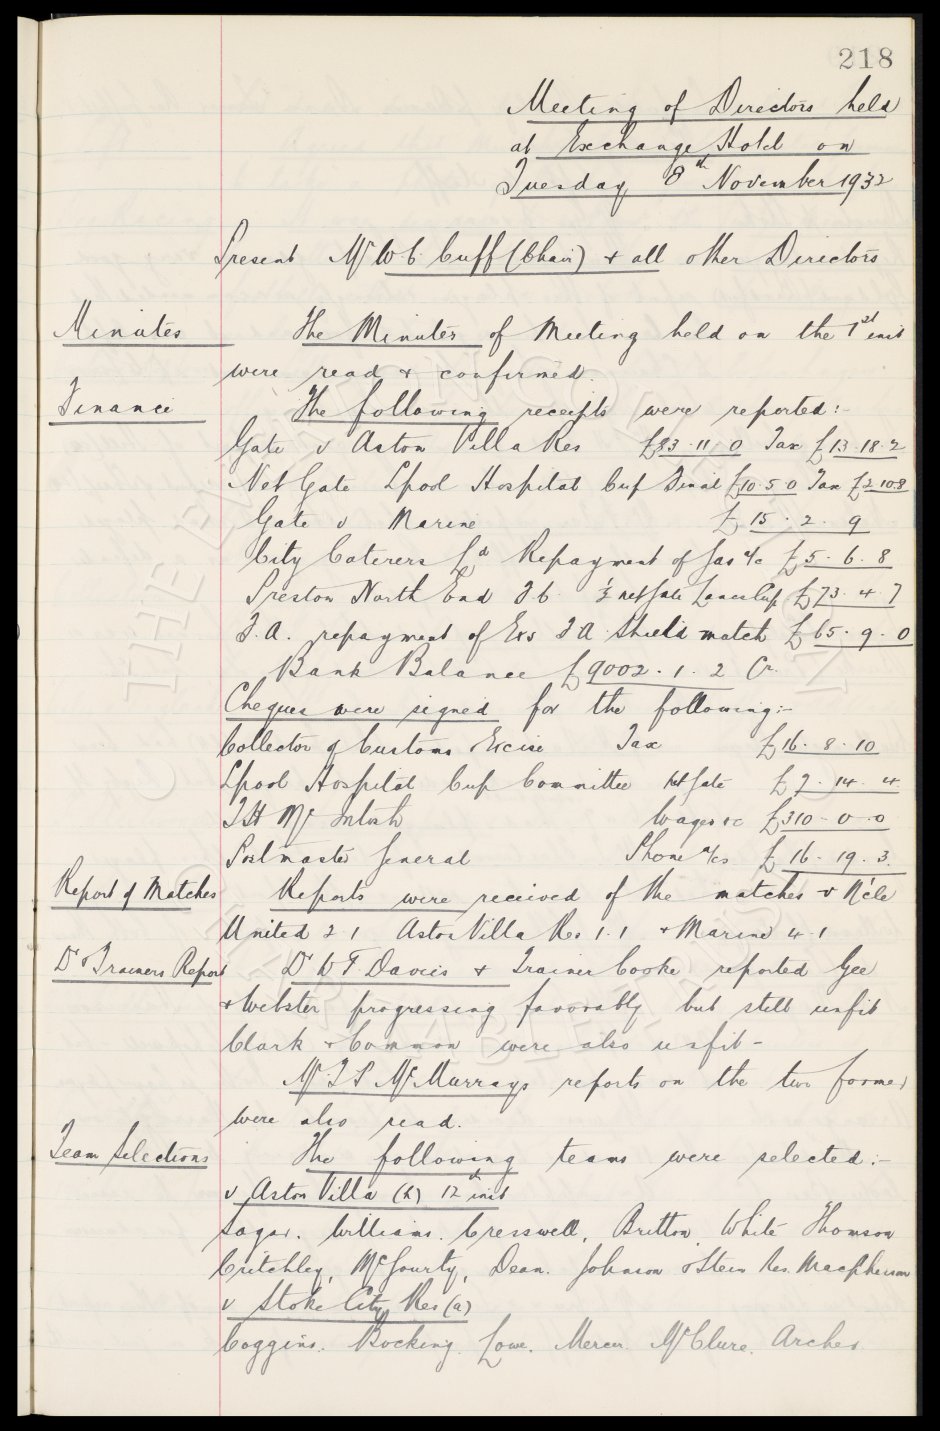 218
Meeting of Directors held
at Exchange Hotel on
Tuesday 8th November 1932
Present Mr W C Cuff (Chair) & all other Directors
Minutes The Minutes of Meeting held on the 1st inst
were read & confirmed.
Finance The following receipts were reported:-
Gate v Aston Villa Res £83.11.0 Tax £13.18.2
Net Gate Lpool Hospital Cup Final £10.5.0 Tax £2.10.8
Gate v Marine £15.2.9
City Caterers Ld Repayment of Gas a/c £5.6.8
Preston North End F.C. ½ net gate Lancs Cup £73.4.7
F.A. repayment of Exs F.A. Shield match £65.9.0
Bank Balance £9002.1.2 Cr.
Cheques were signed for the following:-
Collector of Customs & Excise Tax £16.8.10
Lpool Hospital Cup Committee Net Gate £7.14.4
T H McIntosh Wages &c £310-0-0
Postmaster General Phone a/cs £16.19.3.
Report of Matches Reports were received of the matches v N'cle
United 2 1 Aston Villa Res 1.1 & Marine 4.1
Dr & Trainers Report Dr W F. Davies & Trainer Cooke reported Gee
& Webster progressing favorably but still unfit
Clark & Common were also unfit -
Mr T P McMurrays reports on the two former
were also read.
Team Selections The following teams were selected:-
v Aston Villa (h) 12th inst
Sagar. Williams. Cresswell, Britton, White Thomson
Critchley, McGourty, Dean. Johnson & Stein Res. Macpherson
v Stoke City Res (a)
Coggins. Bocking. Lowe. Mercer. McClure. Archer